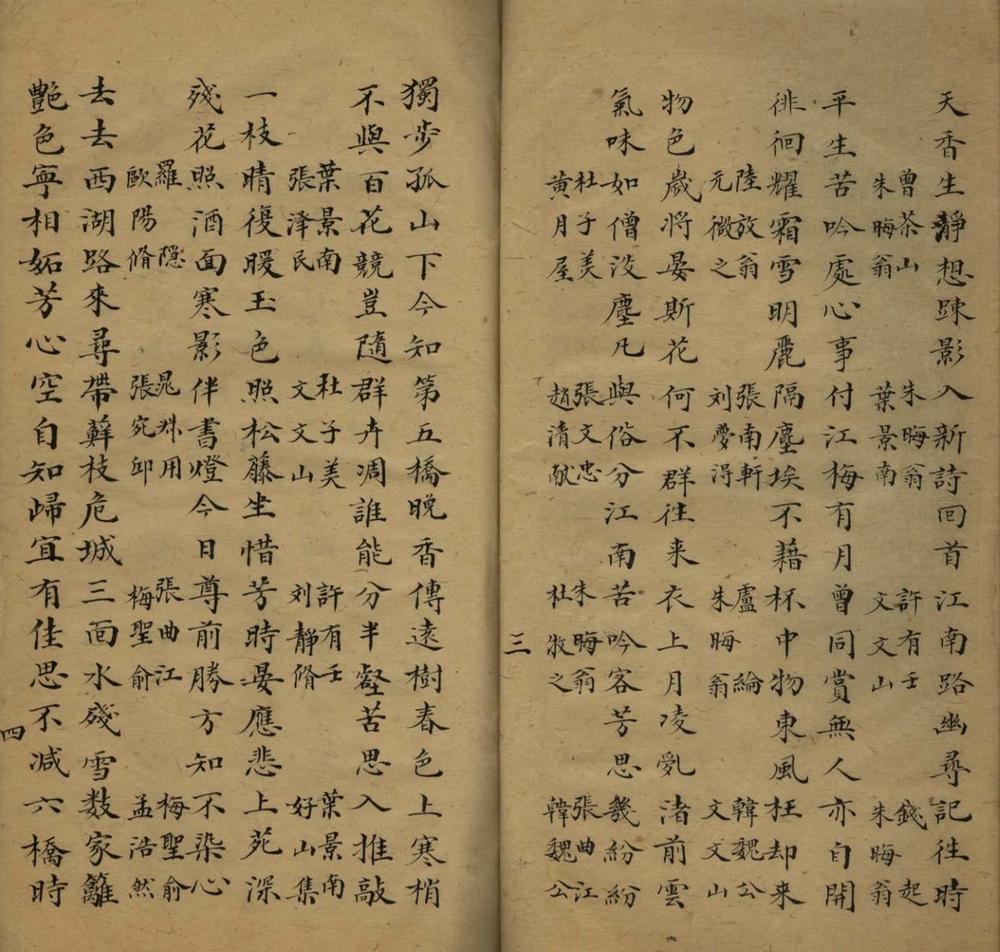 天香生靜想踈影入新詩回首江南路幽尋記往時
曾茶山 朱晦翁 許有壬 錢起
朱晦翁 葉景南 文文山 朱晦翁
平生苦吟處心事付江梅有月曾同賞無人亦自開
徘徊耀霜雪明麗隔塵埃不藉杯中物東風枉却来
陸放翁 張南軒 盧綸 韓魏公
元微之 刘慶得 朱晦翁 文文山
物色歲将晏斯花何不群往来衣上月凌乱渚前雲
氣味如僧没塵凡與俗分江南苦吟客芳思幾紛紛
杜子美 張文忠 朱晦翁 張曲江
黄月屋 趙清献 杜牧之 韓魏公
三
獨步孤山下今知第五橋晚香傳遠樹春色上寒梢
不與百花競豈隨群卉凋誰能分半壑苦思入推敲
葉景南 杜子美 許有壬 葉景南
張澤民 文文山 刘靜脩 好山集
一枝晴復暖玉色照松藤坐惜芳時晏應悲上苑深
殘花照酒面寒影伴書燈今日尊前勝方知不染心
羅隱 晁㳙用 張曲江 梅聖俞
歐陽脩 張宛邱 梅聖俞 孟浩然
去去西湖路來尋帶蘚枝危城三面水殘雪数家籬
艷色寧相妬芳心空自知歸宜有佳思不减六橋時
四